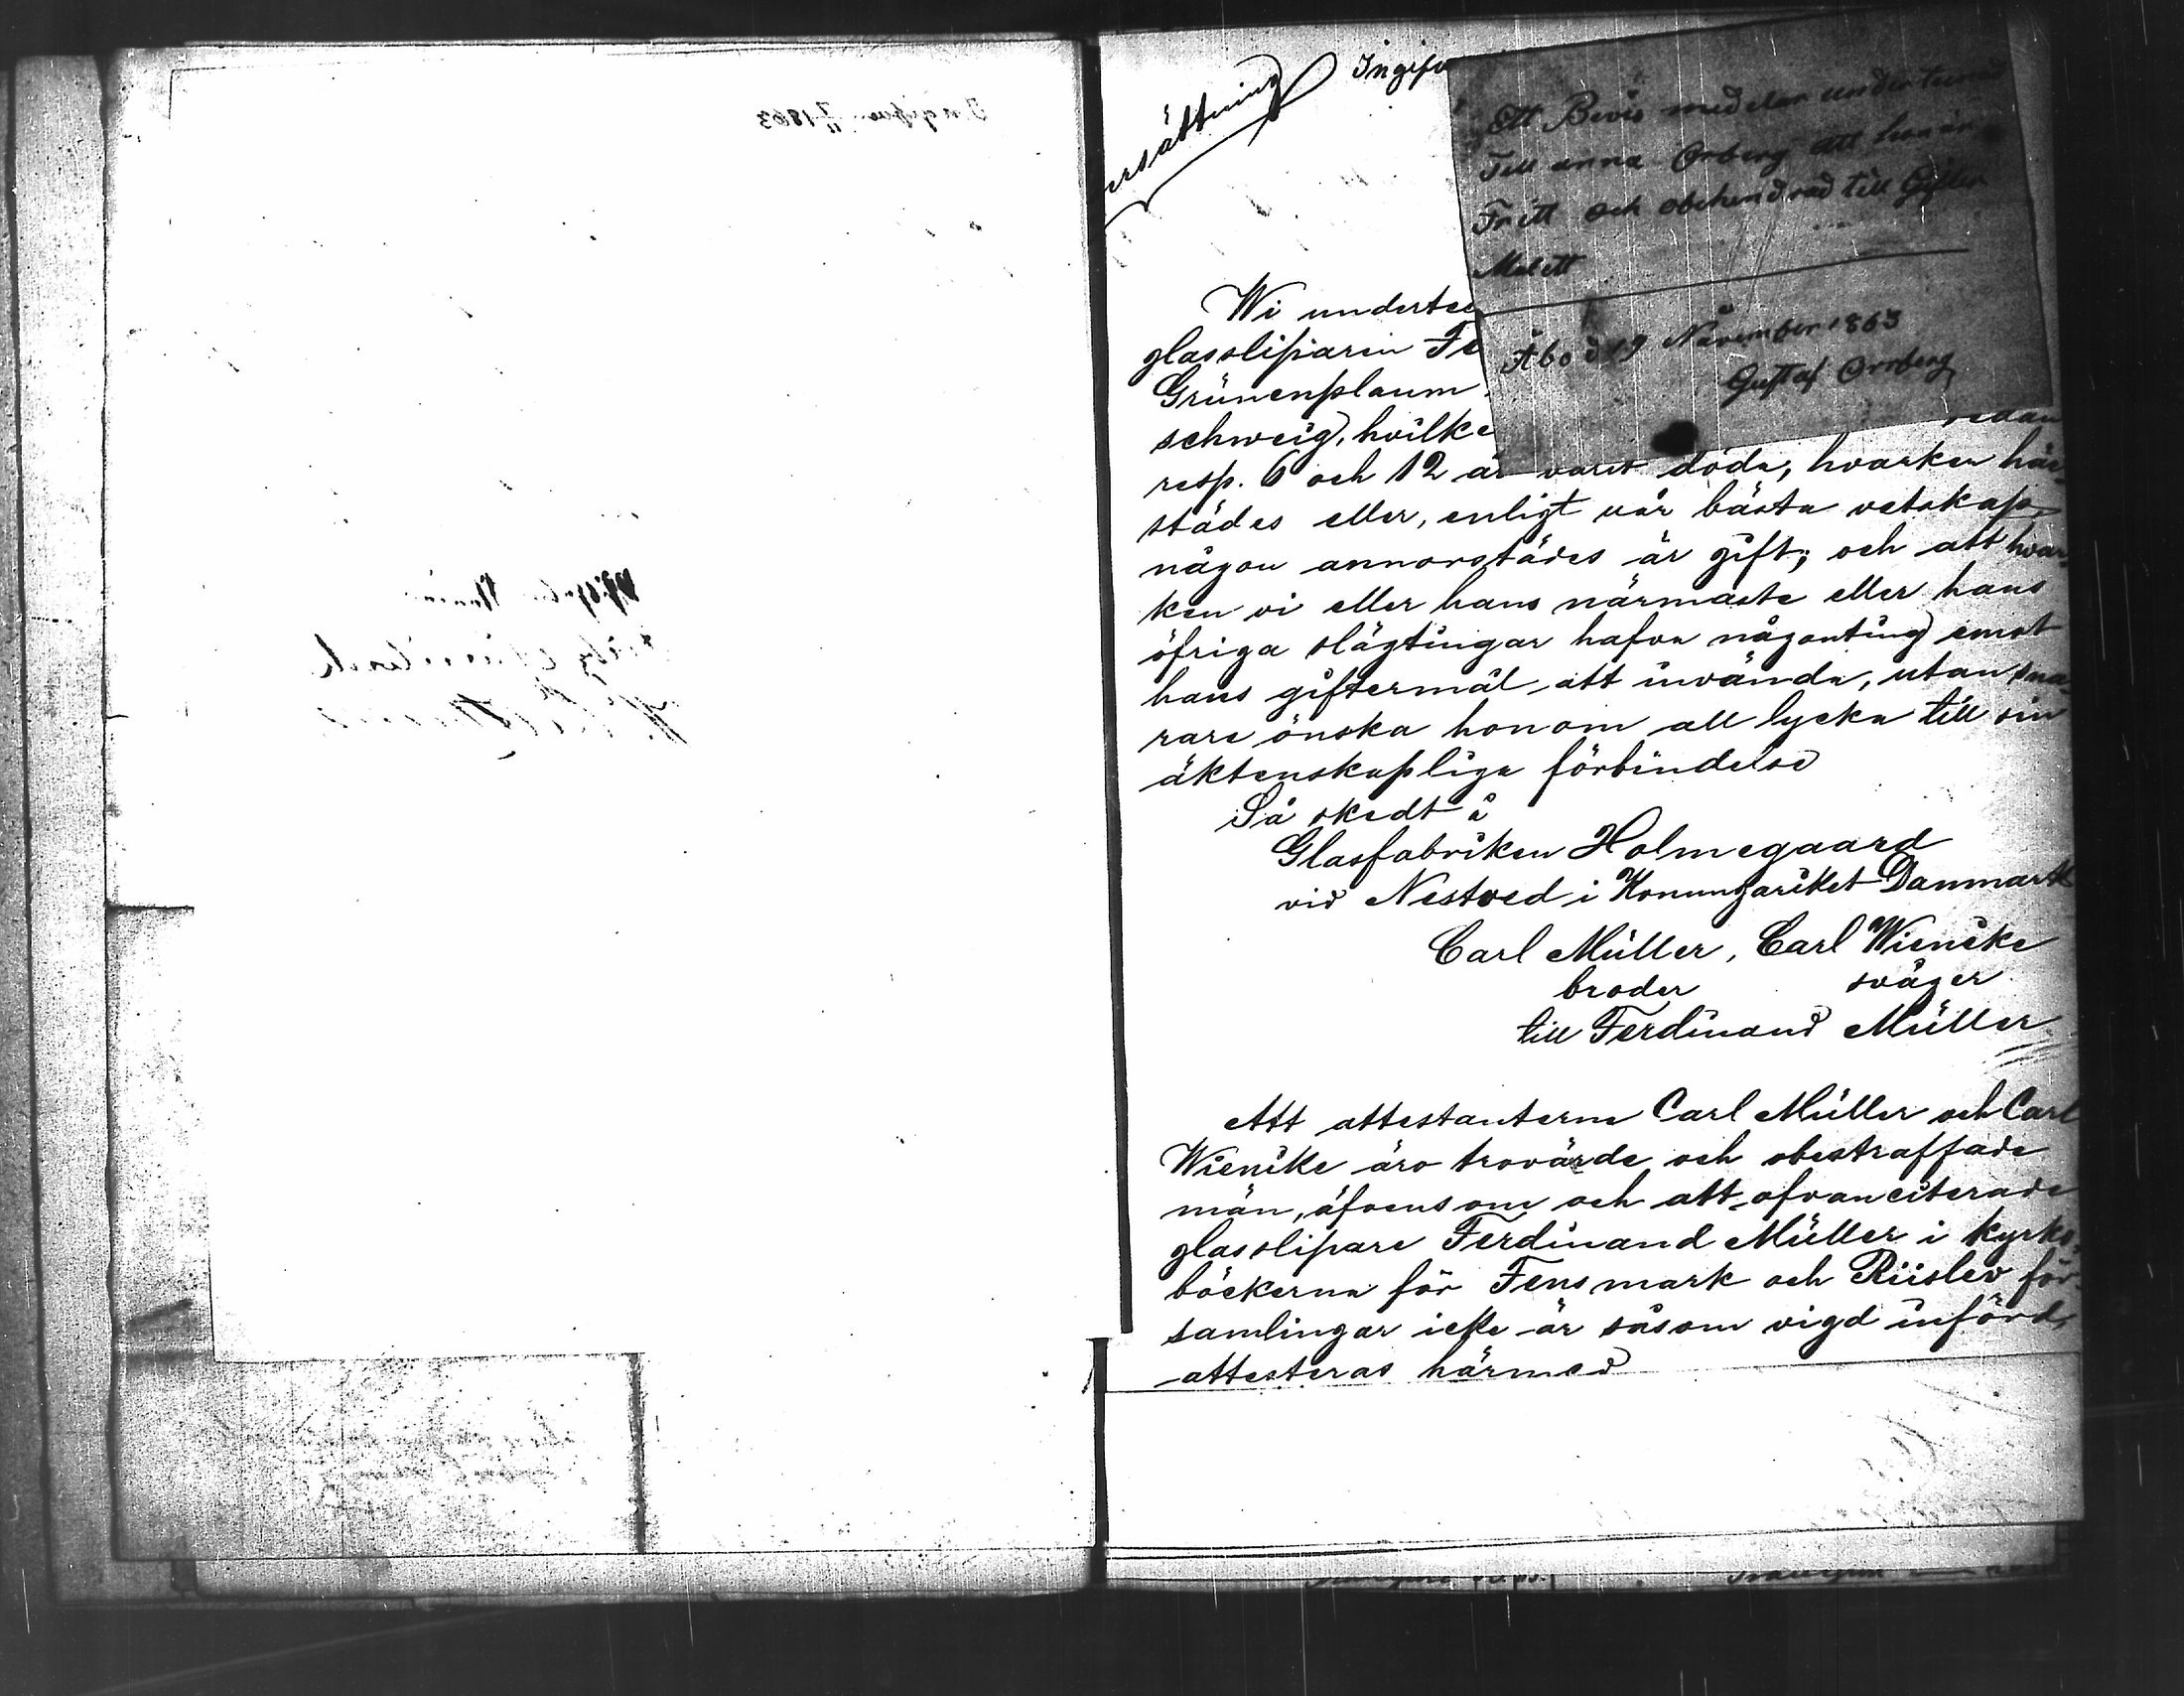 Ingifv
ersättning
Ett Bevis medelar undertecnad
Till anna Orberg att hon är
Fritt och obehendrad till Gifter
Målett
Åbo d 19 November 1863
Gustaf Orrberg
Wi undertec
glassliparen Fe
Grünenplaum
schweig, hvilke
sedan
resp. 6 och 12 år varit döda, hvarken här-
städes eller, enligt vår bästa vetskap,
någon annorstädes är gift; och att hvar-
ken vi eller hans närmaste eller hans
öfriga slägtingar hafva någonting emot
hans giftermål att invända, utan sna-
rare önska honom all lycka till sin
äktenskapliga förbindelse
Så skedt å
Glasfabriken Holmegaard
vid Nestved i Konungariket Danmark
Carl Müller, Carl Wienike
broder svåger
till Ferdinand Müller
Att attestanterne Carl Müller och Carl
Wienike äro trovärde och obestraffade
män, äfvensom och att ofvanciterade
glasslipare Ferdinand Müller i kyrko-
böckerna för Fensmark och Riislev för-
samlingar icke är såsom vigd införd,
attesteras härmed